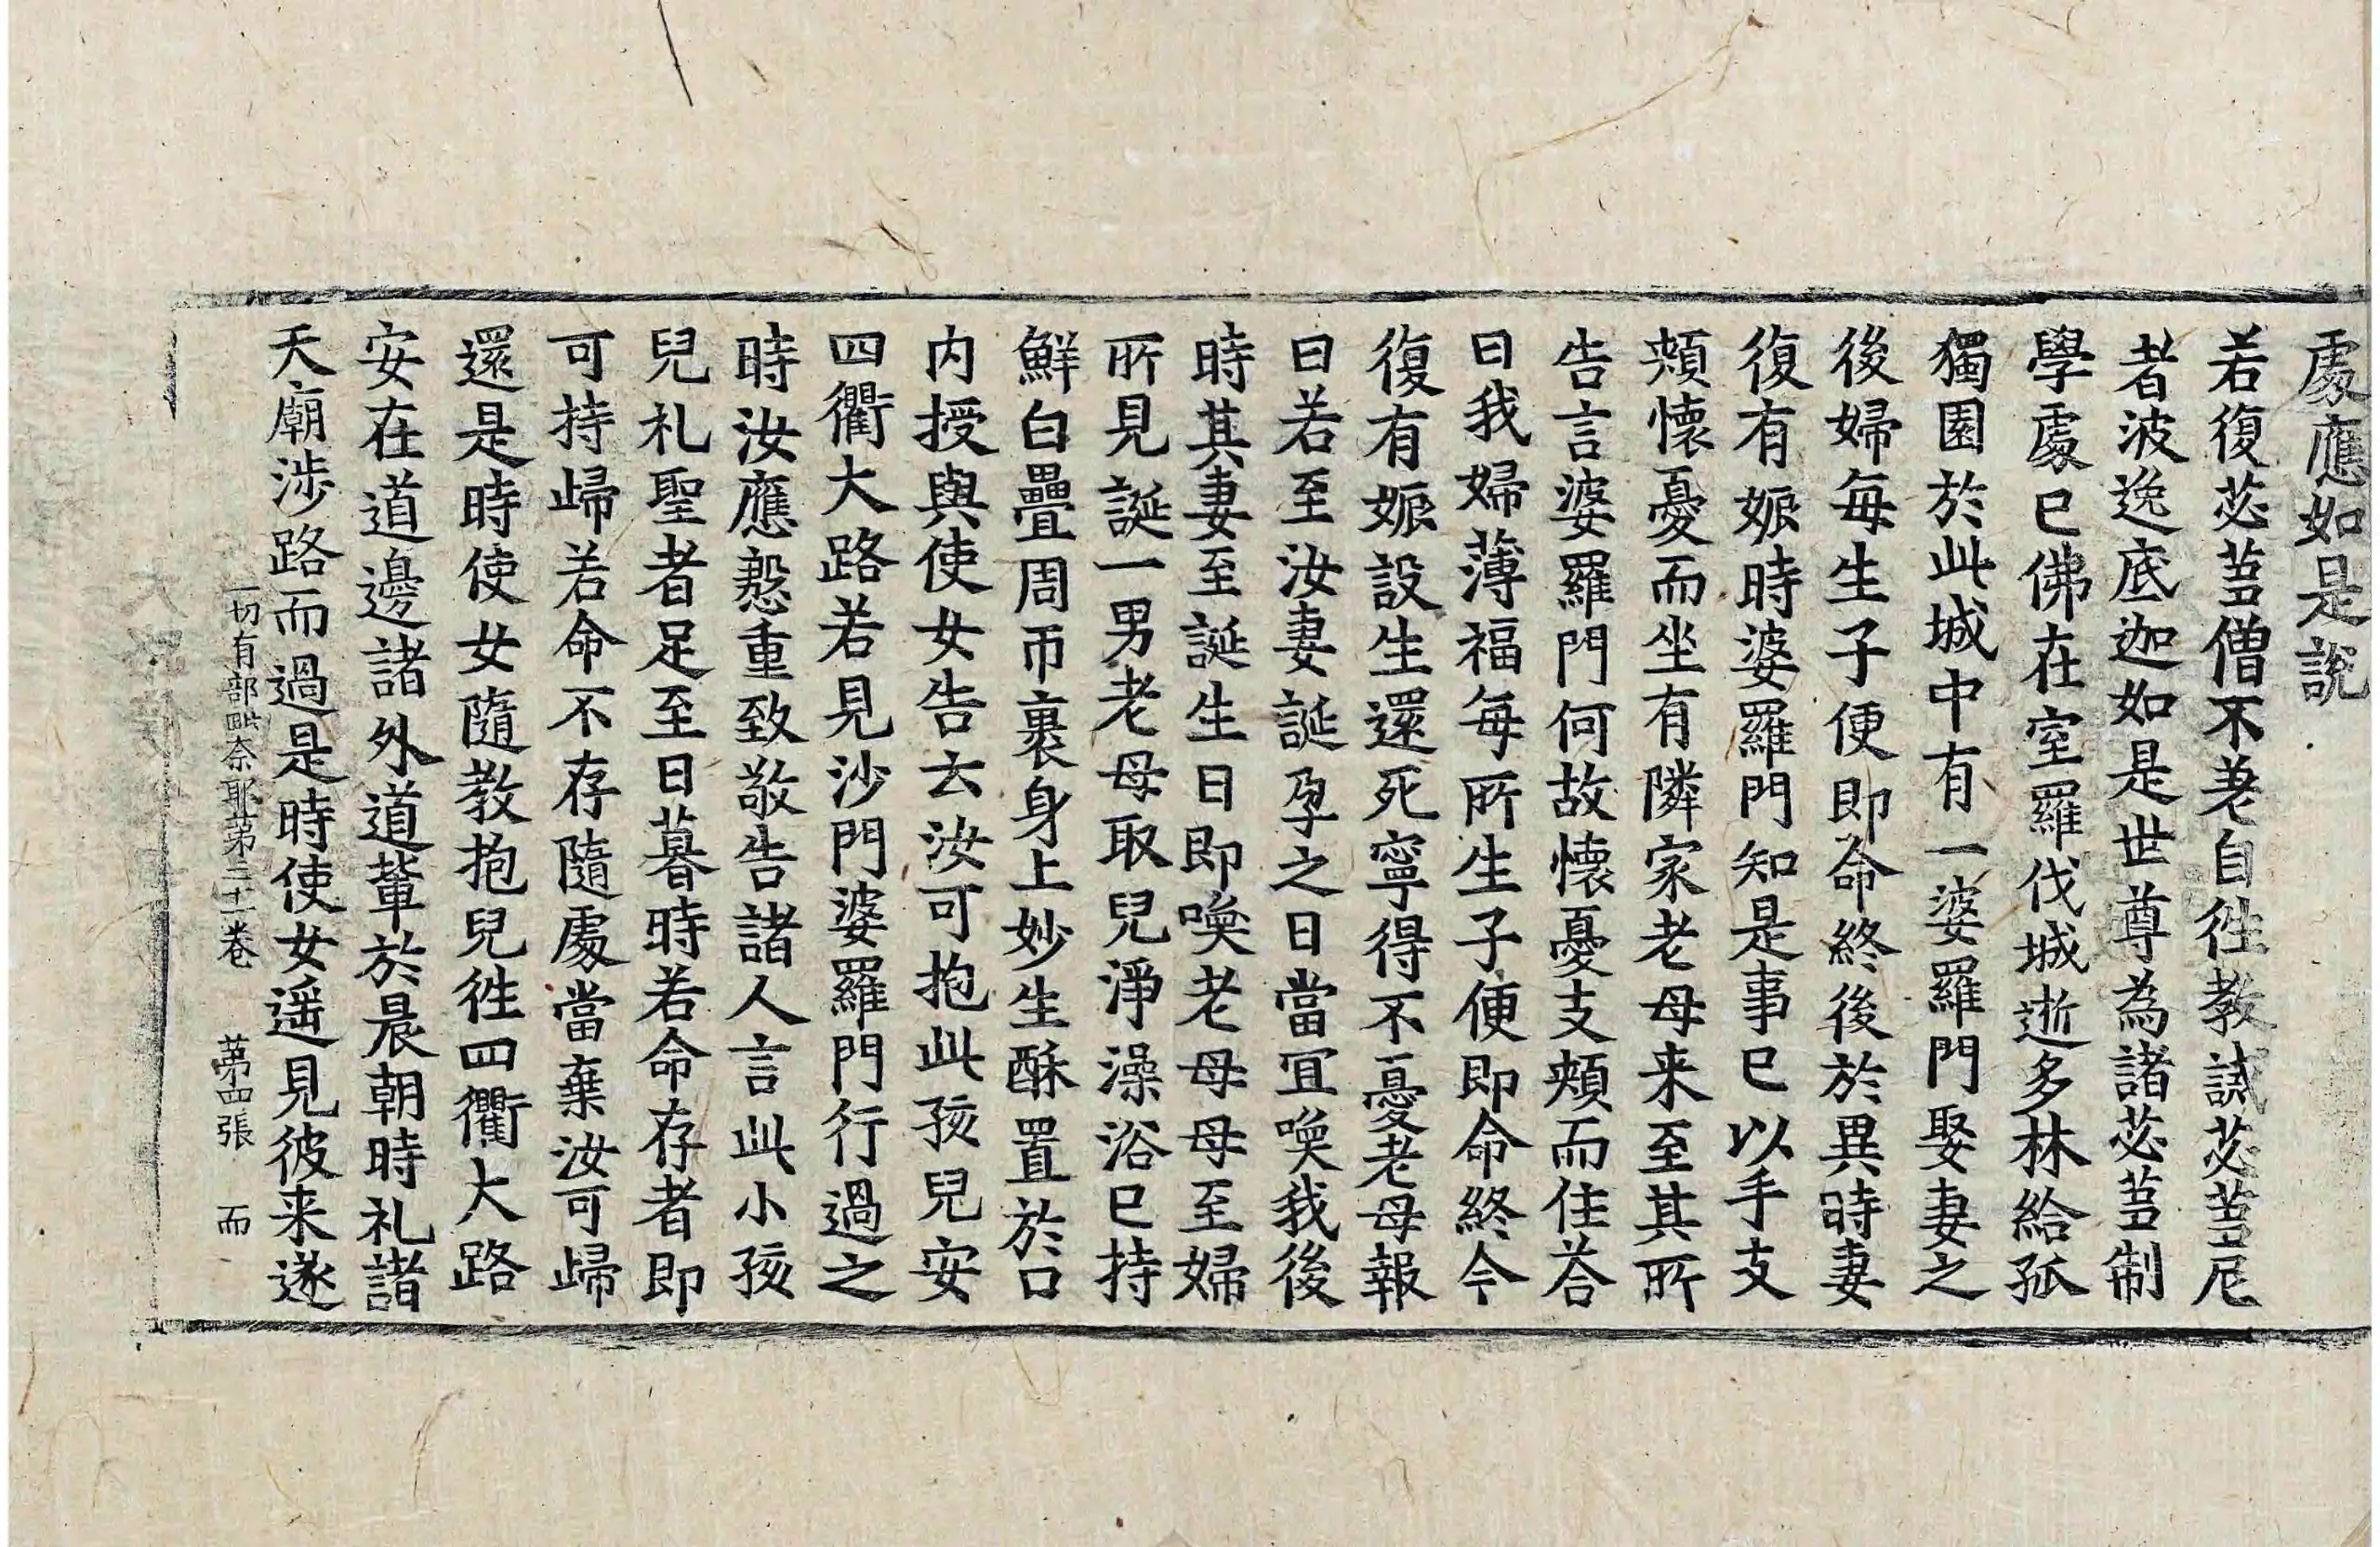 處應如是說
若復苾芻僧不差自徃教誡苾芻尼
者波逸底迦如是世尊為諸苾芻制
學處已佛在室羅伐城逝多林給孤
獨園於此城中有一婆羅門娶妻之
後婦每生子便即命終後於異時妻
復有娠時婆羅門知是事已以手支
頰懷憂而坐有隣家老母来至其所
告言婆羅門何故懷憂支頰而住荅
曰我婦薄福每所生子便即命終今
復有娠設生還死寧得不憂老母報
曰若至汝妻誕孕之日當冝喚我後
時其妻至誕生日即喚老母母至婦
所見誕一男老母取兒淨澡浴已持
鮮白疊周帀裹身上妙生酥置於口
内授與使女告云汝可抱此孩兒安
四衢大路若見沙門婆羅門行過之
時汝應慇重致敬告諸人言此小孩
兒礼聖者足至日暮時若命存者即
可持歸若命不存隨處當棄汝可歸
還是時使女隨教抱兒徃四衢大路
安在道邊諸外道輩於晨朝時礼諸
天廟涉路而過是時使女遥見彼来遂
一切有部毗奈耶苐三十一卷　苐四張　而